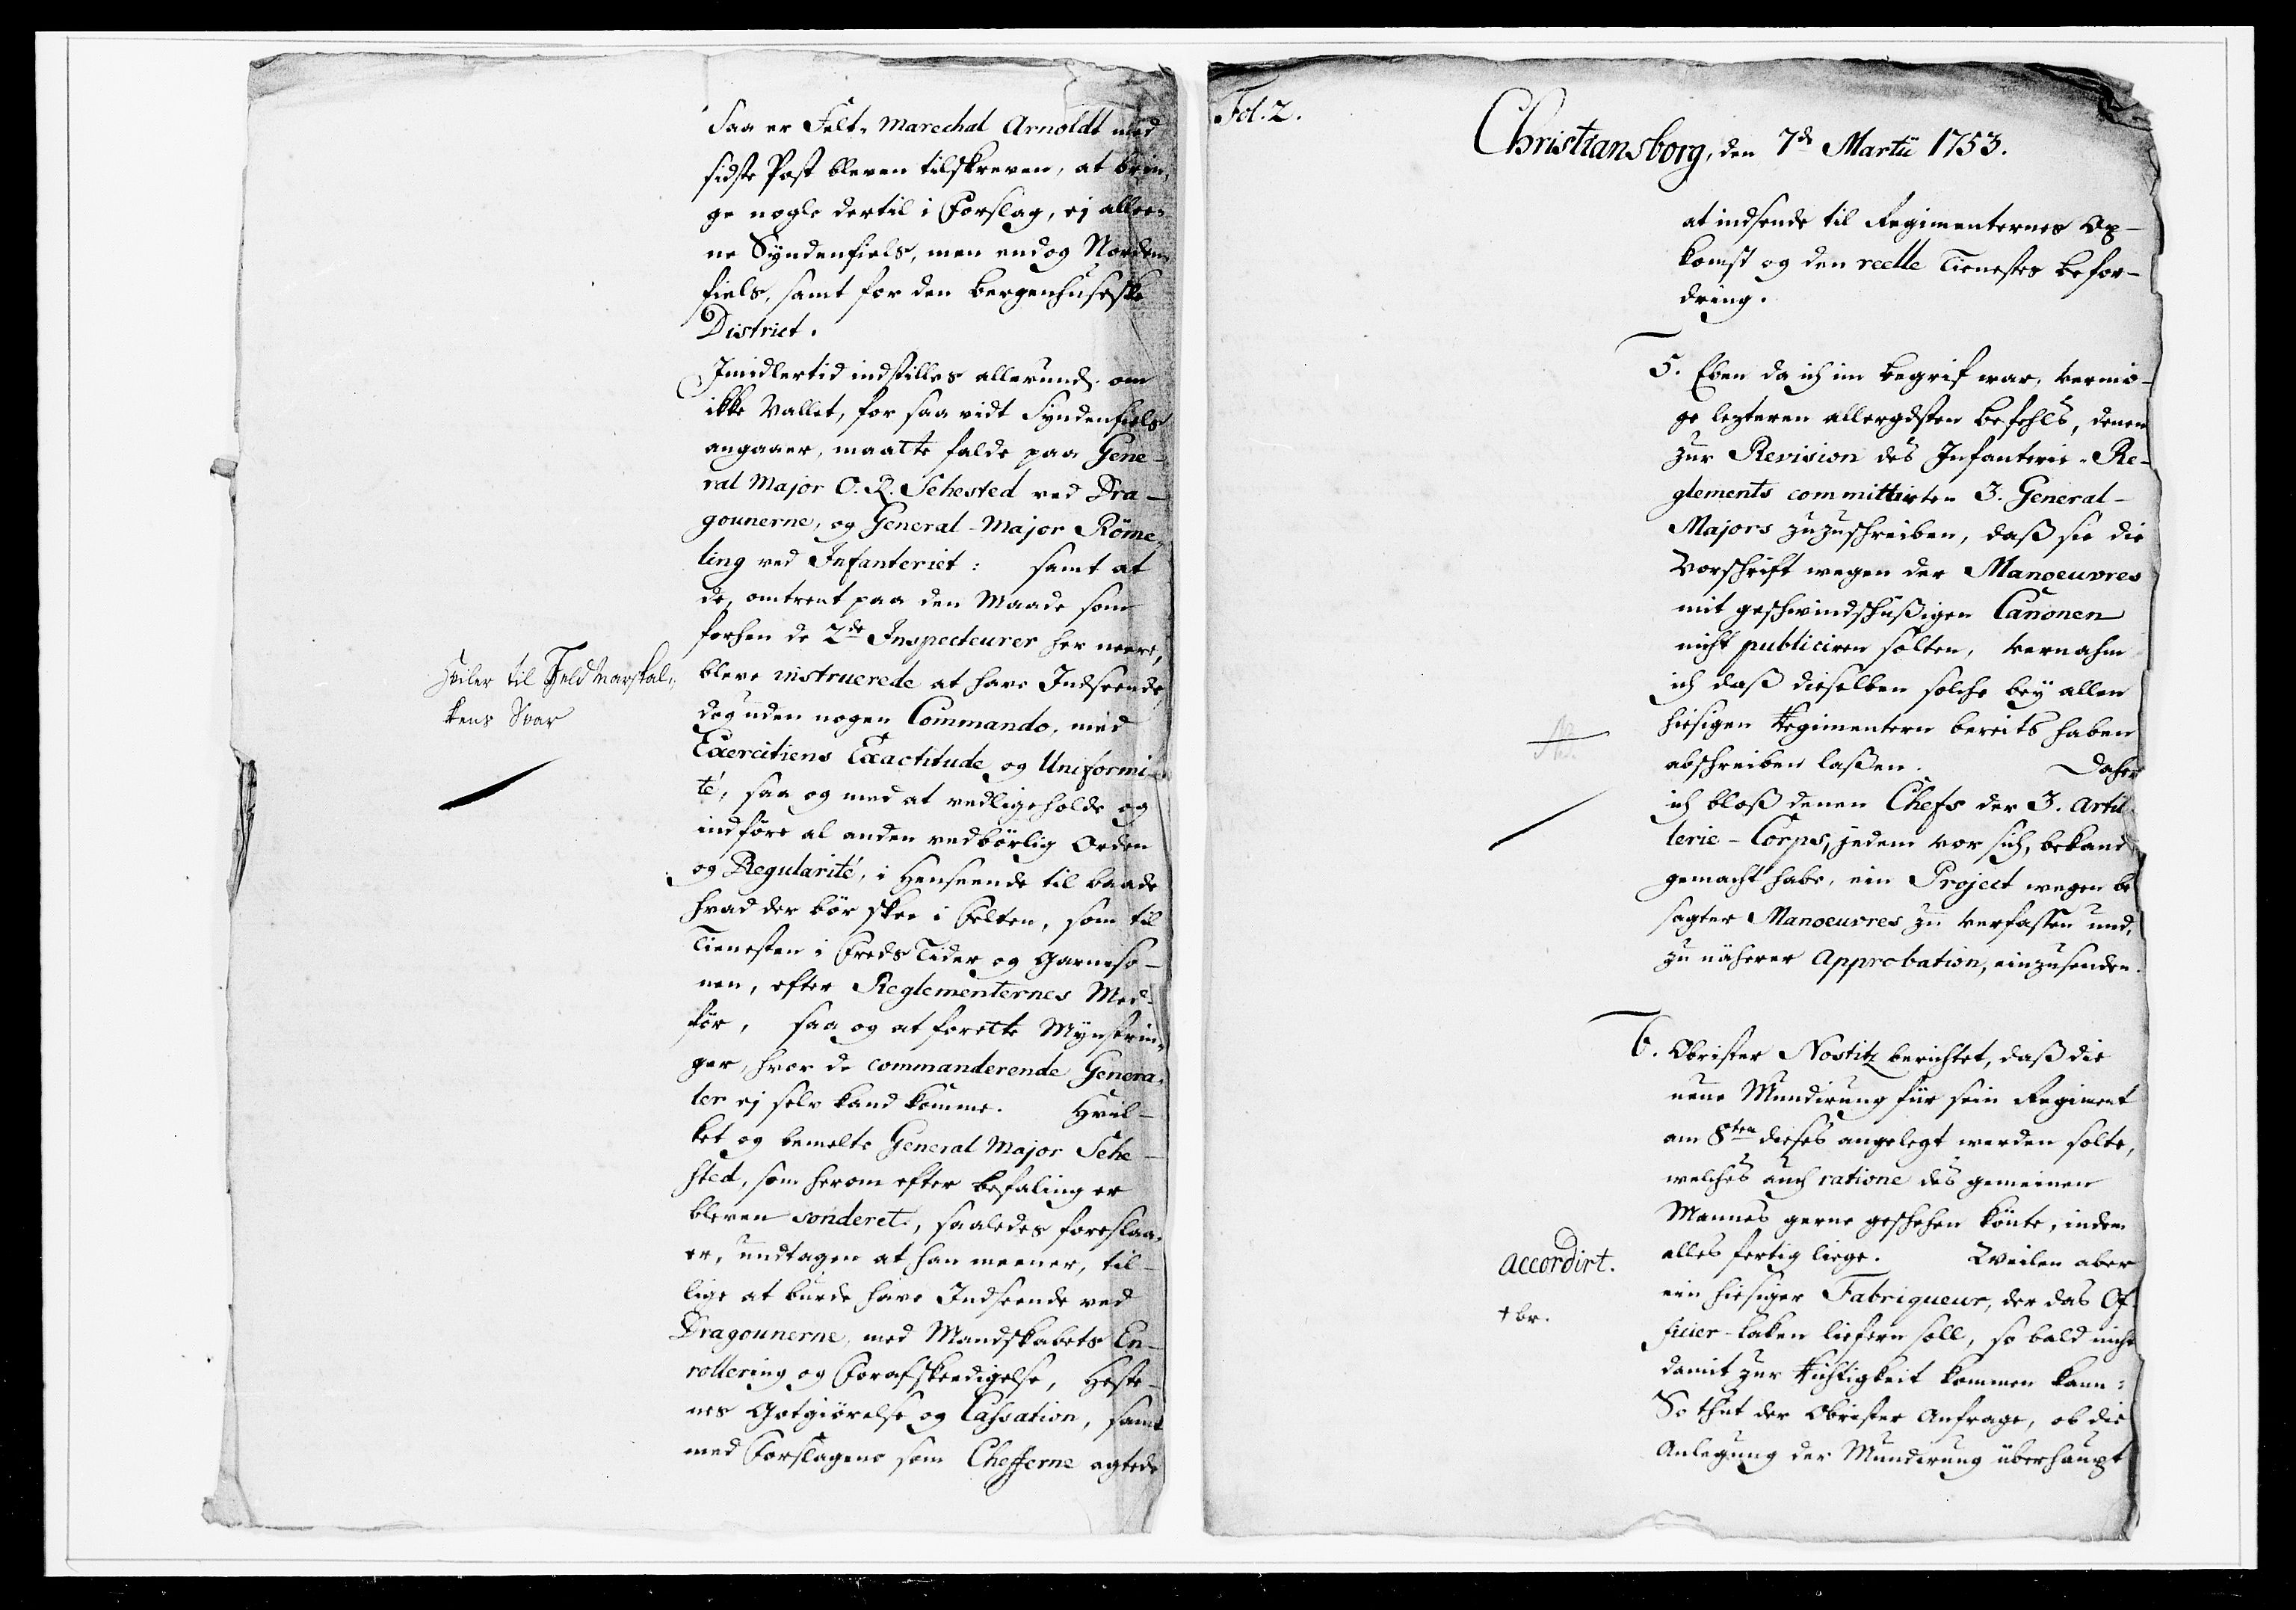 Saa er Felt-Marechal Arnoldt med
sidste Post bleven tilskreven, at brin-
ge nogle dertil i Forslag, ej allee-
ne Syndenfiels, men endog Norden-
fiels, samt for den Bergenhuseske
District.
Imidlertid indstilles allerunds. om
ikke Vallet, for saa vidt Syndenfiels
angaaer, maatte falde paa Gene-
ral Major O. R. Sehested ved Dra-
gounerne, og General-Major Röme-
ling ved Infanteriet: samt at
de, omtrent paa den Maade som
forhen de 2de Inspecteurer her neere,
bleve instruerede at have Indseende,
dog uden nogen Commando, med
Exercitiens Exactitude og Uniformi-
té, saa og med at vedligeholde og
indføre al anden vedbörlig Orden
og Regularité, i Henseende til baade
hvad der bör skee i Felten, som til
Tienesten i Freds Tider og Garniso-
nen, efter Reglementernes Med-
för, saa og at forette Mynstrin-
ger, hvor de commanderende Genera-
ler ej selv kand komme. Hvil-
ket og bemelte General Major Sehe-
sted, som herom efter Befaling er
bleven sonderet, saaledes foreslaa-
er, undtagen at han meener, til-
lige at burde have Indseende ved
Dragounerne, med Mandskabets En-
rollering og Forafskeedigelse, Heste-
nes Gotgiörelse og Cassation, samt
med Forslagene som Chefferne agtede
Hviler til Feld Marskal-
kens Svar
Fol. 2.
Christiansborg, den 7de Martii 1753.
at indsende til Regimenternes Op-
komst og den reelle Tienestes Befor-
dring.
5. Eben da ich im Begrif war, vermö-
ge lezteren allergdsten Befehls, denen
zur Revision des Infanterie-Re-
glements committirten 3. General-
Majors zuzuschreiben, daß sie die
Vorschrift wegen der Manoeuvres
mit geschwindschußigen Canonen
nicht publiciren solten, vernahm
ich daß dieselben solche bey allen
hiesigen Regimentern bereits haben
abschreiben laßen. Daher
ich bloß denen Chefs der 3. Artil-
lerie-Corps, jedem vor sich, bekand
gemacht habe, ein Project wegen be
sagter Manoeuvres zu verfassen und,
zu näherer Approbation, einzusenden.
6. Obrister Nostitz berichtet, daß die
neue Mundirung für sein Regiment
am 8ten dieses angelegt werden solte,
welches auch ratione des gemeinen
Mannes gerne geschehen könte, indem
alles fertig liege. Weilen aber
ein hiesiger Fabriqueur, der das Of-
ficier-Laken liefern soll, so bald nicht
damit zur Richtigkeit kommen kann:
So thut der Obrister Anfrage, ob die
Anlegung der Mundirung überhaupt
accordirt.